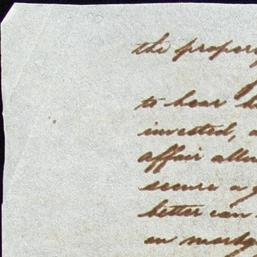 the proper
to hear
invested, a
affair allu
secure a
better can
on mortg